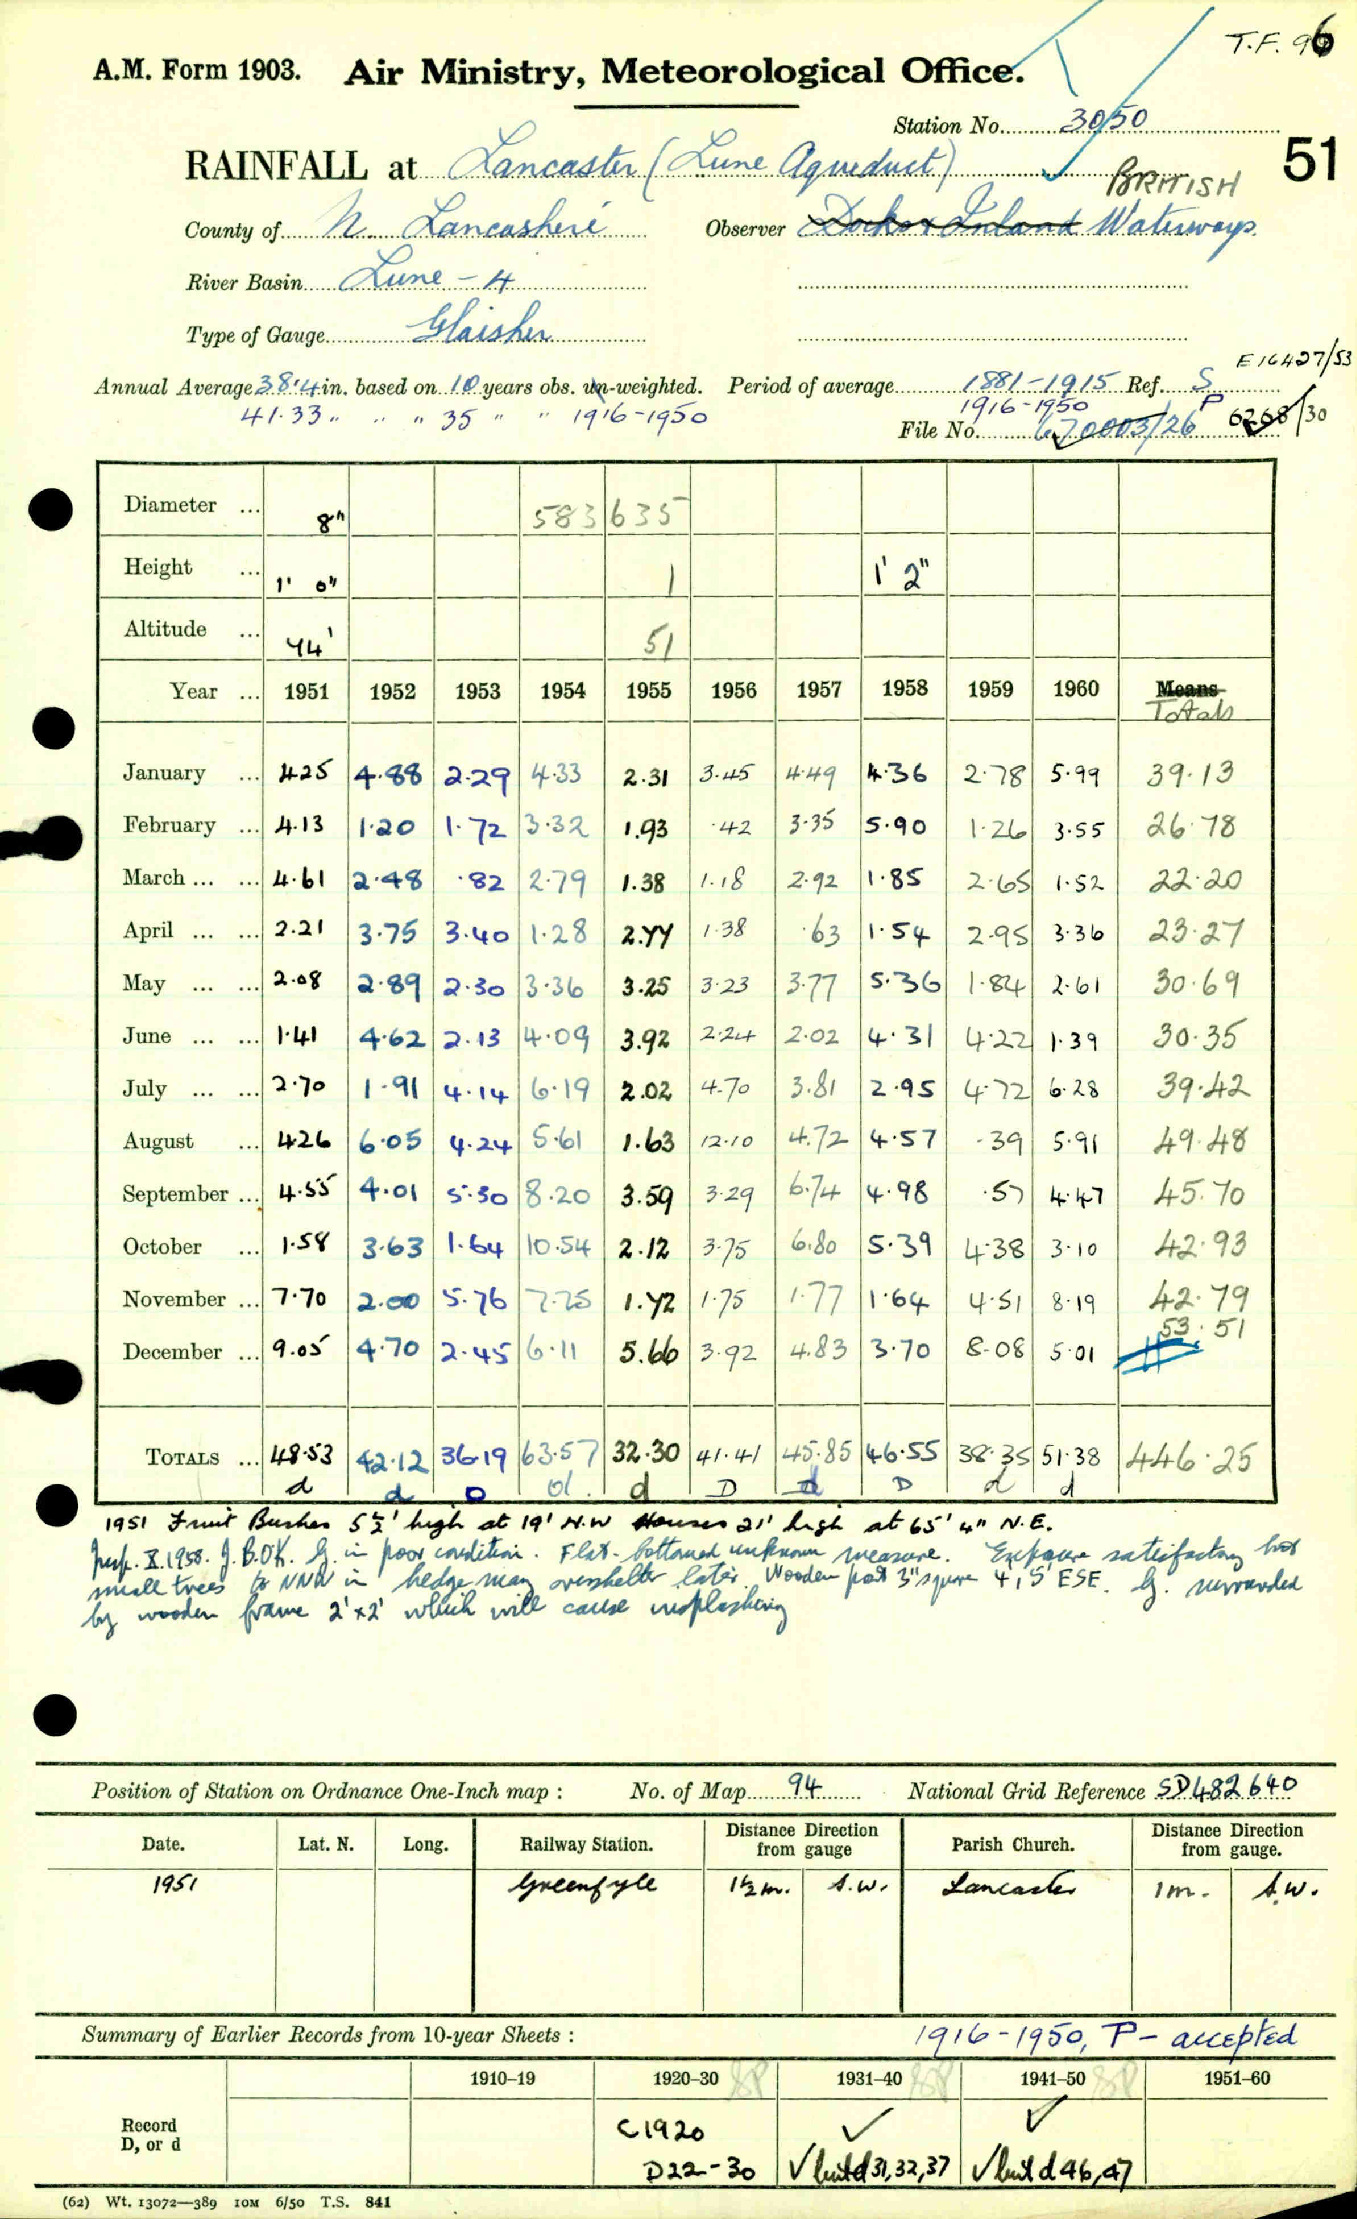 T.F. 96
A.M. Form 1903. Air Ministry, Meteorological Office.
Station No. 3050
51
RAINFALL at Lancaster (Lune Aqueduct)
BRITISH
County of N. Lancashire Observer Docks & Inland Waterways
River Basin Lune - 4
Type of Gauge Glaisher
E16427/53
Annual Average 38.4 in. based on 10 years obs. un-weighted. Period of average 1881-1915 Ref. S
41.33 " " " 35 " " 1916-1950 1916-1950 P
File No. 670003/26 6268/30
Diameter ... 8" 583 635
Height ... 1' 0" 1 1' 2"
Altitude ... 44' 51
Year ... 1951 1952 1953 1954 1955 1956 1957 1958 1959 1960 Means
Totals
January ... 4.25 4.88 2.29 4.33 2.31 3.45 4.49 4.36 2.78 5.99 39.13
February ... 4.13 1.20 1.72 3.32 1.93 .42 3.35 5.90 1.26 3.55 26.78
March ... ... 4.61 2.48 .82 2.79 1.38 1.18 2.92 1.85 2.65 1.52 22.20
April ... ... 2.21 3.75 3.40 1.28 2.77 1.38 .63 1.54 2.95 3.36 23.27
May ... ... 2.08 2.89 2.30 3.36 3.25 3.23 3.77 5.36 1.84 2.61 30.69
June ... ... 1.41 4.62 2.13 4.09 3.92 2.24 2.02 4.31 4.22 1.39 30.35
July ... ... 2.70 1.91 4.14 6.19 2.02 4.70 3.81 2.95 4.72 6.28 39.42
August ... 4.26 6.05 4.24 5.61 1.63 12.10 4.72 4.57 .39 5.91 49.48
September ... 4.55 4.01 5.30 8.20 3.59 3.29 6.74 4.98 .57 4.47 45.70
October ... 1.58 3.63 1.64 10.54 2.12 3.75 6.80 5.39 4.38 3.10 42.93
November ... 7.70 2.00 5.76 7.75 1.72 1.75 1.77 1.64 4.51 8.19 42.79
December ... 9.05 4.70 2.45 6.11 5.66 3.92 4.83 3.70 8.08 5.01 53.51
TOTALS ... 48.53 42.12 36.19 63.57 32.30 41.41 45.85 46.55 38.35 51.38 446.25
d d D d d D d D d d
1951 Fruit Bushes 5½' high at 19' N.W Houses 21' high at 65' 4" N.E.
Insp. X.1958. J.B.O'K. G. in poor condition. Flat-bottomed unknown measure. Exposure satisfactory but
small trees to NNW in hedge may overshelter later. Wooden post 3" square 4'5' ESE. G. surrounded
by wooden frame 2'x2' which will cause insplashing
Position of Station on Ordnance One-Inch map : No. of Map 94 National Grid Reference SD482640
Date. Lat. N. Long. Railway Station. Distance from gauge Direction Parish Church. Distance from gauge. Direction
1951 Greenfyle 1½ m. S.W. Lancaster 1 m. S.W.
Summary of Earlier Records from 10-year Sheets : 1916-1950, P - accepted
1910–19 1920–30 SP 1931–40 SP 1941–50 SP 1951–60
Record
D, or d
C1920 ✓ ✓
D22-30 ✓ but d 31,32,37 ✓ but d 46,47
(62) Wt. 13072—389 10M 6/50 T.S. 841